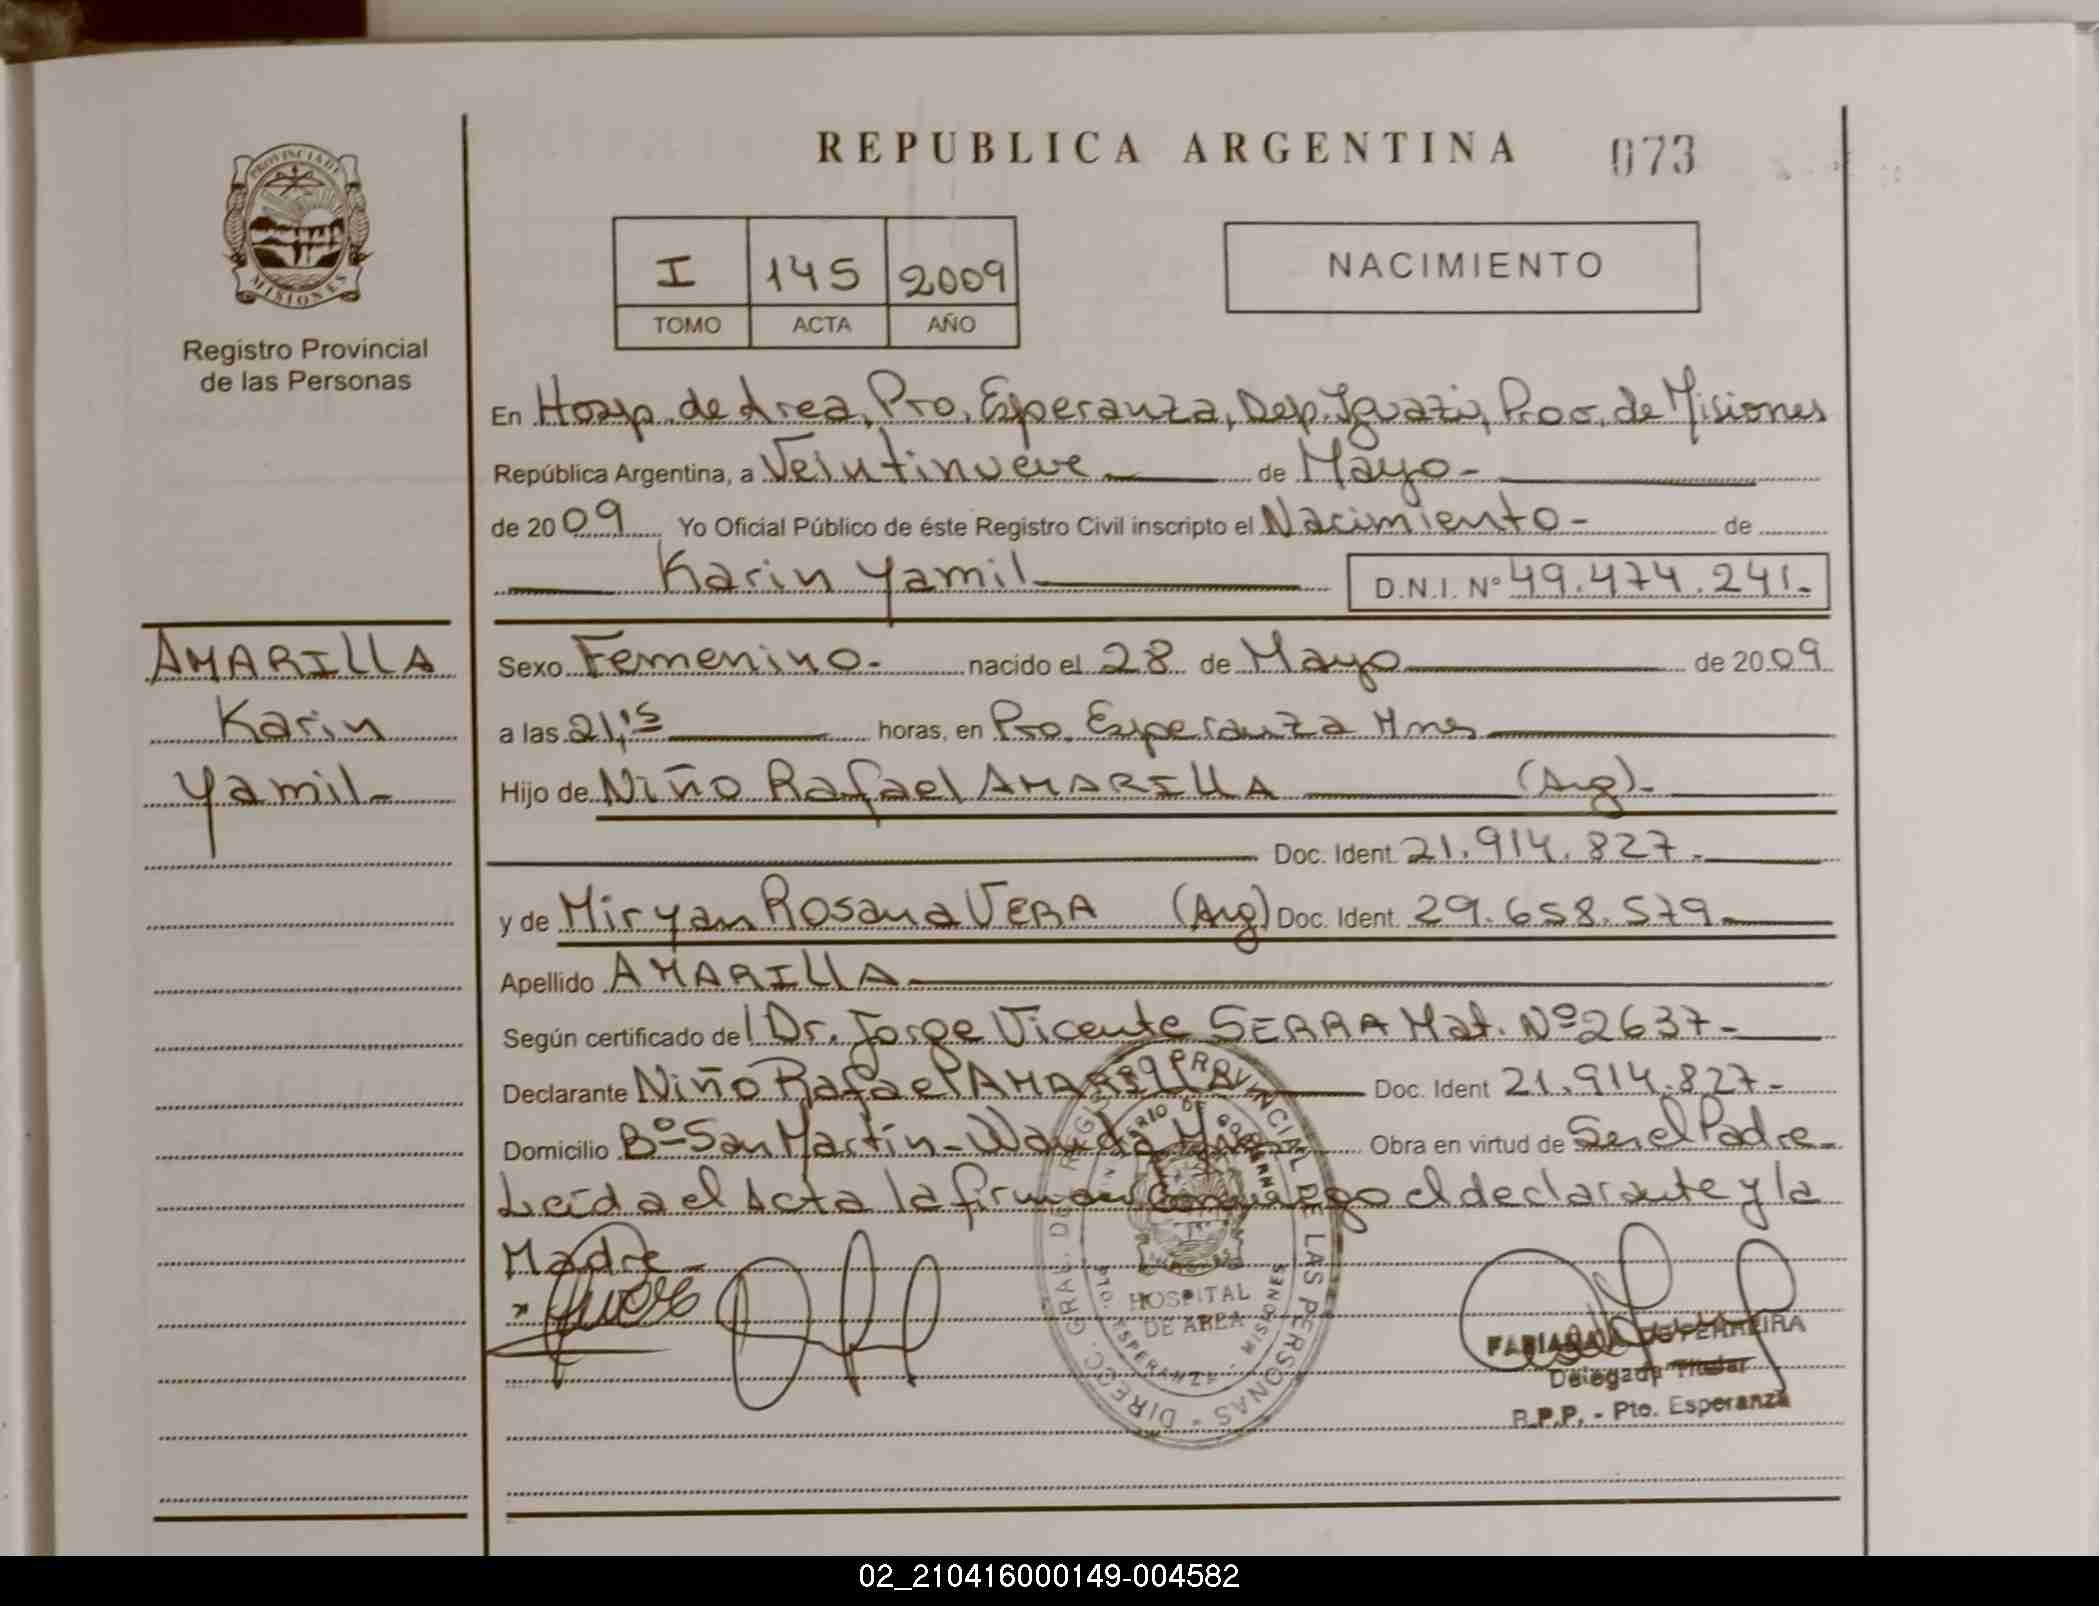 REPUBLICA ARGENTINA 073
PROVINCIA DE
MISIONES
Registro Provincial
de las Personas
I 145 2009
TOMO ACTA AÑO
NACIMIENTO
En Hosp. de Area, Pto. Esperanza, Dep. Iguazú, Prov. de Misiones
República Argentina, a Veintinueve de Mayo-
de 2009 Yo Oficial Público de éste Registro Civil inscripto el Nacimiento- de
Karin Yamil D.N.I. Nº 49.474.241.-
AMARILLA
Karin
Yamil-
Sexo Femenino.- nacido el 28 de Mayo de 2009
a las 21,15 horas, en Pto. Esperanza Mnes
Hijo de Niño Rafael AMARILLA (Arg).-
Doc. Ident. 21.914.827.-
y de Miryan Rosana VERA (Arg) Doc. Ident. 29.658.579.-
Apellido AMARILLA
Según certificado del Dr. Jorge Vicente SERRA Mat. Nº 2637-
Declarante Niño Rafael AMARILLA Doc. Ident 21.914.827-
Domicilio Bº San Martín- Wanda Mnes Obra en virtud de Ser el Padre-
Leída el Acta la firman conmigo el declarante y la
Madre-
DIRECC. GRAL. DE REGISTRO PROVINCIAL DE LAS PERSONAS
MINISTERIO DE GOBIERNO
HOSPITAL
DE AREA
PTO. ESPERANZA - MISIONES
FERREIRA
Delegada Titular
R.P.P. - Pto. Esperanza
02_210416000149-004582